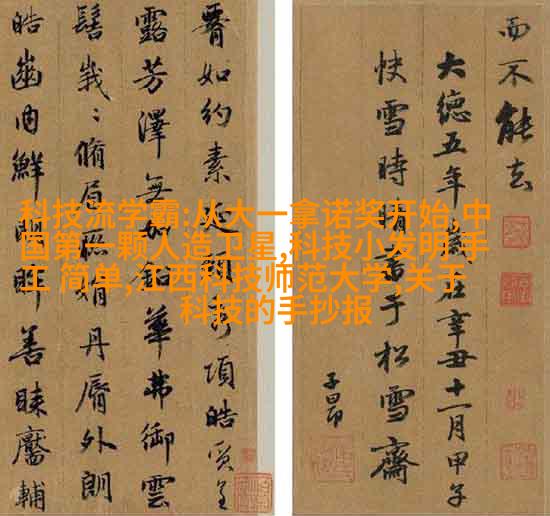 科技流学霸:从大一拿诺奖开始,中
国第一颗人造卫星,科技小发明 手
工 简单,江西科技师范大学,关于
科技的手抄报
而不能去
大德五年歲在辛丑十一月甲子
快雪時晴書于松雪齋
子昂
如約素項皓質呈
露芳澤無加華弗御雲
髻峩〻脩眉娟丹脣外朗
皓齒内鮮明眸善睞靨輔